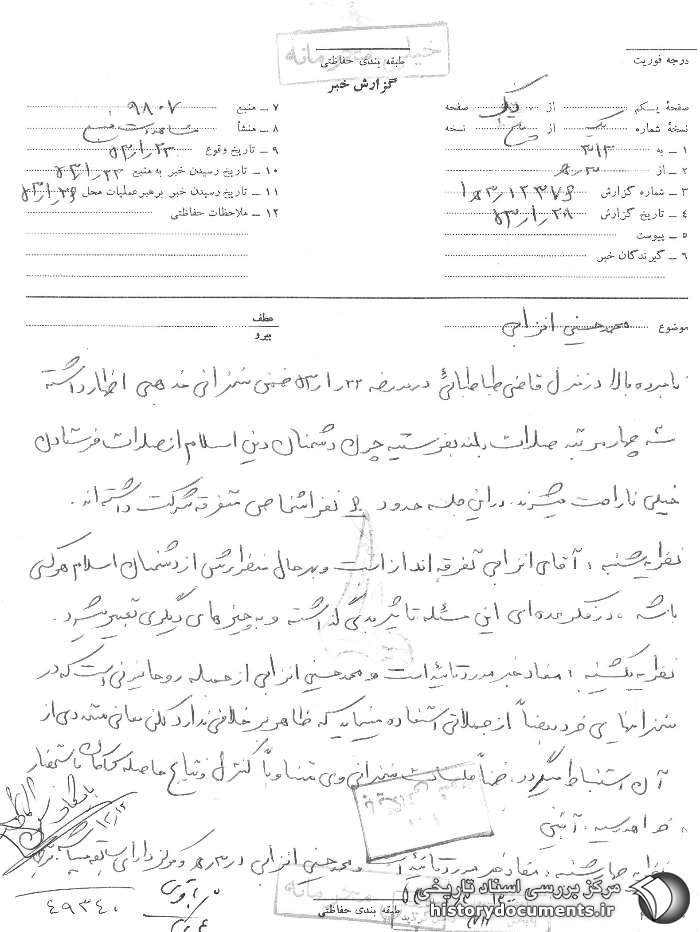 خیلی محرمانه
درجه فوریت
طبقه بندی حفاظتی
گزارش خبر
صفحهٔ یکم از یک صفحه
نسخهٔ شماره یک از پنج نسخه
۱ ــ به ۳۱۳
۲ ــ از
۳ ــ شماره گزارش
۴ ــ تاریخ گزارش ۵۳/۱/۲۸
۵ ــ پیوست
۶ ــ گیرندگان خبر
۷ ــ منبع ۹۸۰۷
۸ ــ منشأ مشاهدات منبع
۹ ــ تاریخ وقوع ۵۳/۱/۲۳
۱۰ ــ تاریخ رسیدن خبر به منبع
۱۱ ــ تاریخ رسیدن خبر برهبر عملیات محل
۱۲ ــ ملاحظات حفاظتی
موضوع محمدحسین انزابی
عطف
پیرو
نامبرده بالا در منزل قاضی طباطبائی در مورخه ضمن سخنرانی مذهبی اظهار داشته
سه چهار مرتبه صلوات بلند بفرستید چون دشمنان دین اسلام از صلوات فرستادن
خیلی ناراحت میشوند. در این جلسه حدود نفر اشخاص متفرقه شرکت داشته‌اند.
نظریه شنبه: آقای انزابی تفرقه انداز است و بهر حال منظورش از دشمنان اسلام هر کسی
باشد، در فکر عده‌ای این مسئله تاثیر بدی گذاشته و به چیزهای دیگری تعبیر میشود.
نظریه یکشنبه: مفاد خبر مورد تائید است و محمدحسین انزابی از جمله روحانیونی است که در
سخنرانیهای خود بعضاً از جملاتی استفاده مینماید که ظاهر بر خلافی ندارد لکن معانی متعددی از
آن استنباط میگردد. ضمناً جلسات سخنرانی وی متناوباً کنترل و نتایج حاصله کماکان باستحضار
خواهد رسید. آئینی
نظریه چهارشنبه: مفاد خبر مورد تائید است و محمدحسین انزابی در مرکز دارای سابقه میباشد
۴۹۳۴۰
طبقه بندی حفاظتی
مرکز بررسی اسناد تاریخی
historydocuments.ir